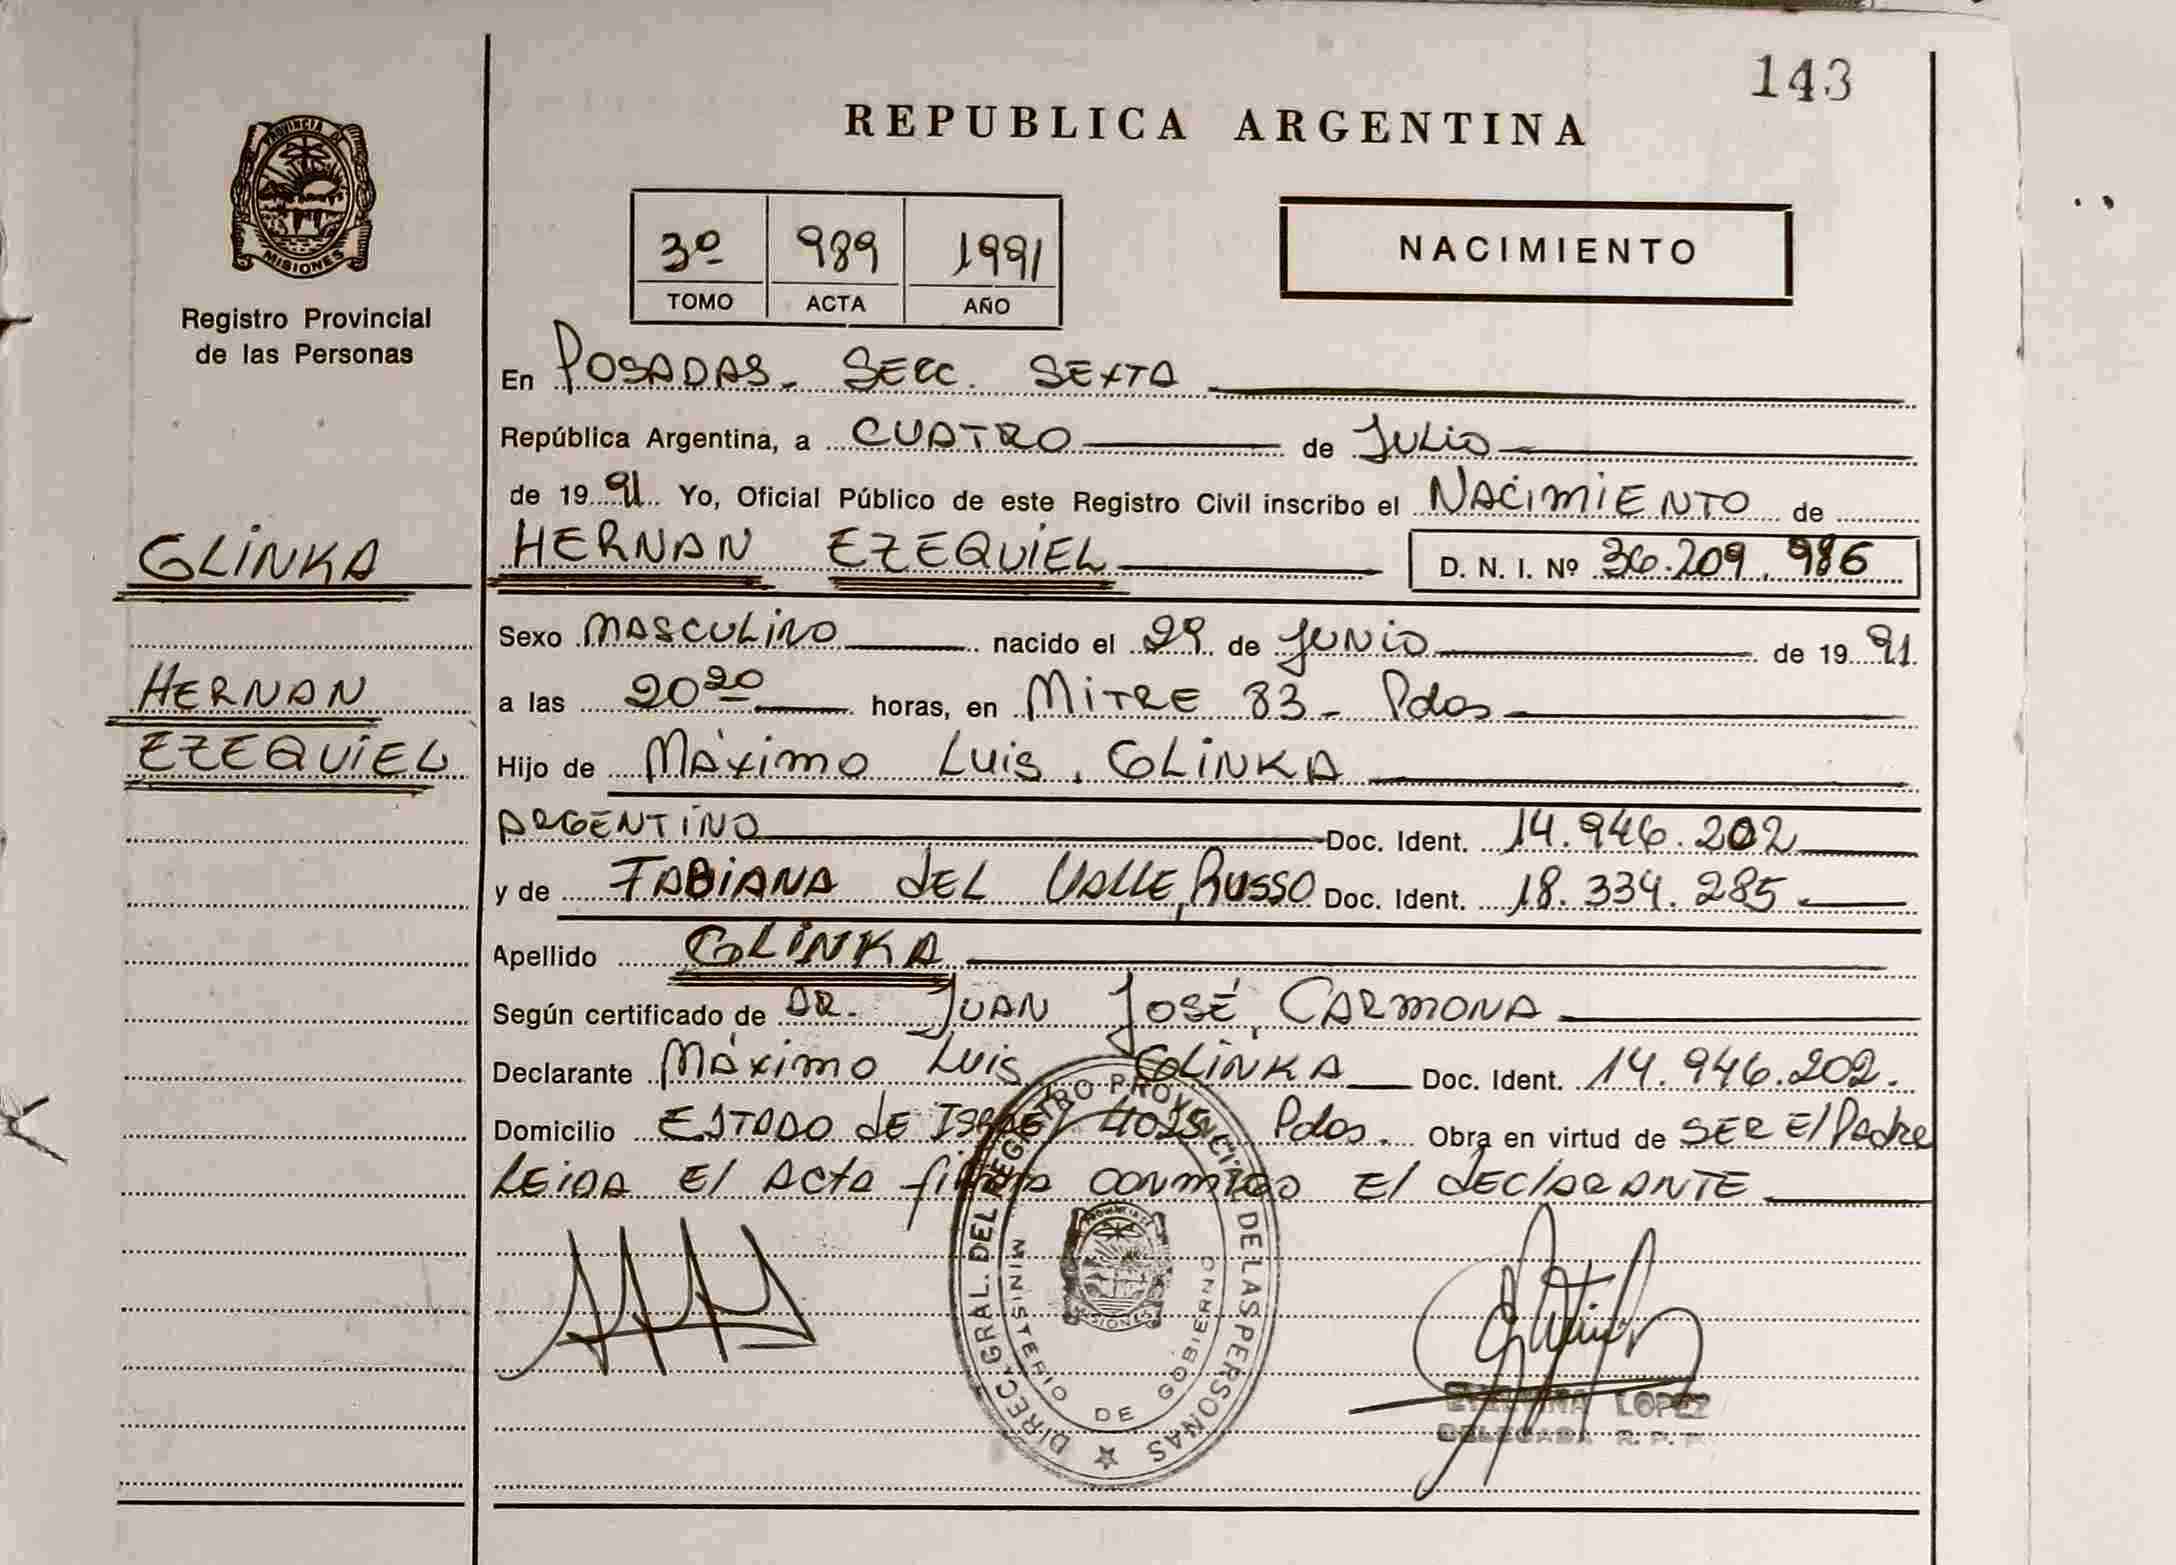 143
REPUBLICA ARGENTINA
PROVINCIA DE
MISIONES
Registro Provincial
de las Personas
3º 989 1991
TOMO ACTA AÑO
NACIMIENTO
En POSADAS. SECC. SEXTA
República Argentina, a CUATRO de JULIO
de 1991 Yo, Oficial Público de este Registro Civil inscribo el NACIMIENTO de
GLINKA HERNAN EZEQUIEL D. N. I. Nº 36.209.986
Sexo MASCULINO nacido el 29 de JUNIO de 1991.
HERNAN a las 20 20 horas, en MITRE 83 - Pdas
EZEQUIEL Hijo de MÁXIMO LUIS, GLINKA
ARGENTINO Doc. Ident. 14.946.202
y de FABIANA DEL VALLE, RUSSO Doc. Ident. 18.334.285
Apellido GLINKA
Según certificado de DR. JUAN JOSÉ, CARMONA
Declarante MÁXIMO LUIS, GLINKA Doc. Ident. 14.946.202.
Domicilio ESTADO de ISRAEL 4025 Pdas. Obra en virtud de SER El Padre
LEIDA El Acta firma conmigo El dEClARANTE
DIREC. GRAL. DEL REGISTRO PROVINCIAL DE LAS PERSONAS
MINISTERIO DE GOBIERNO
MISIONES
LOPEZ
DELEGADA R. P. P.